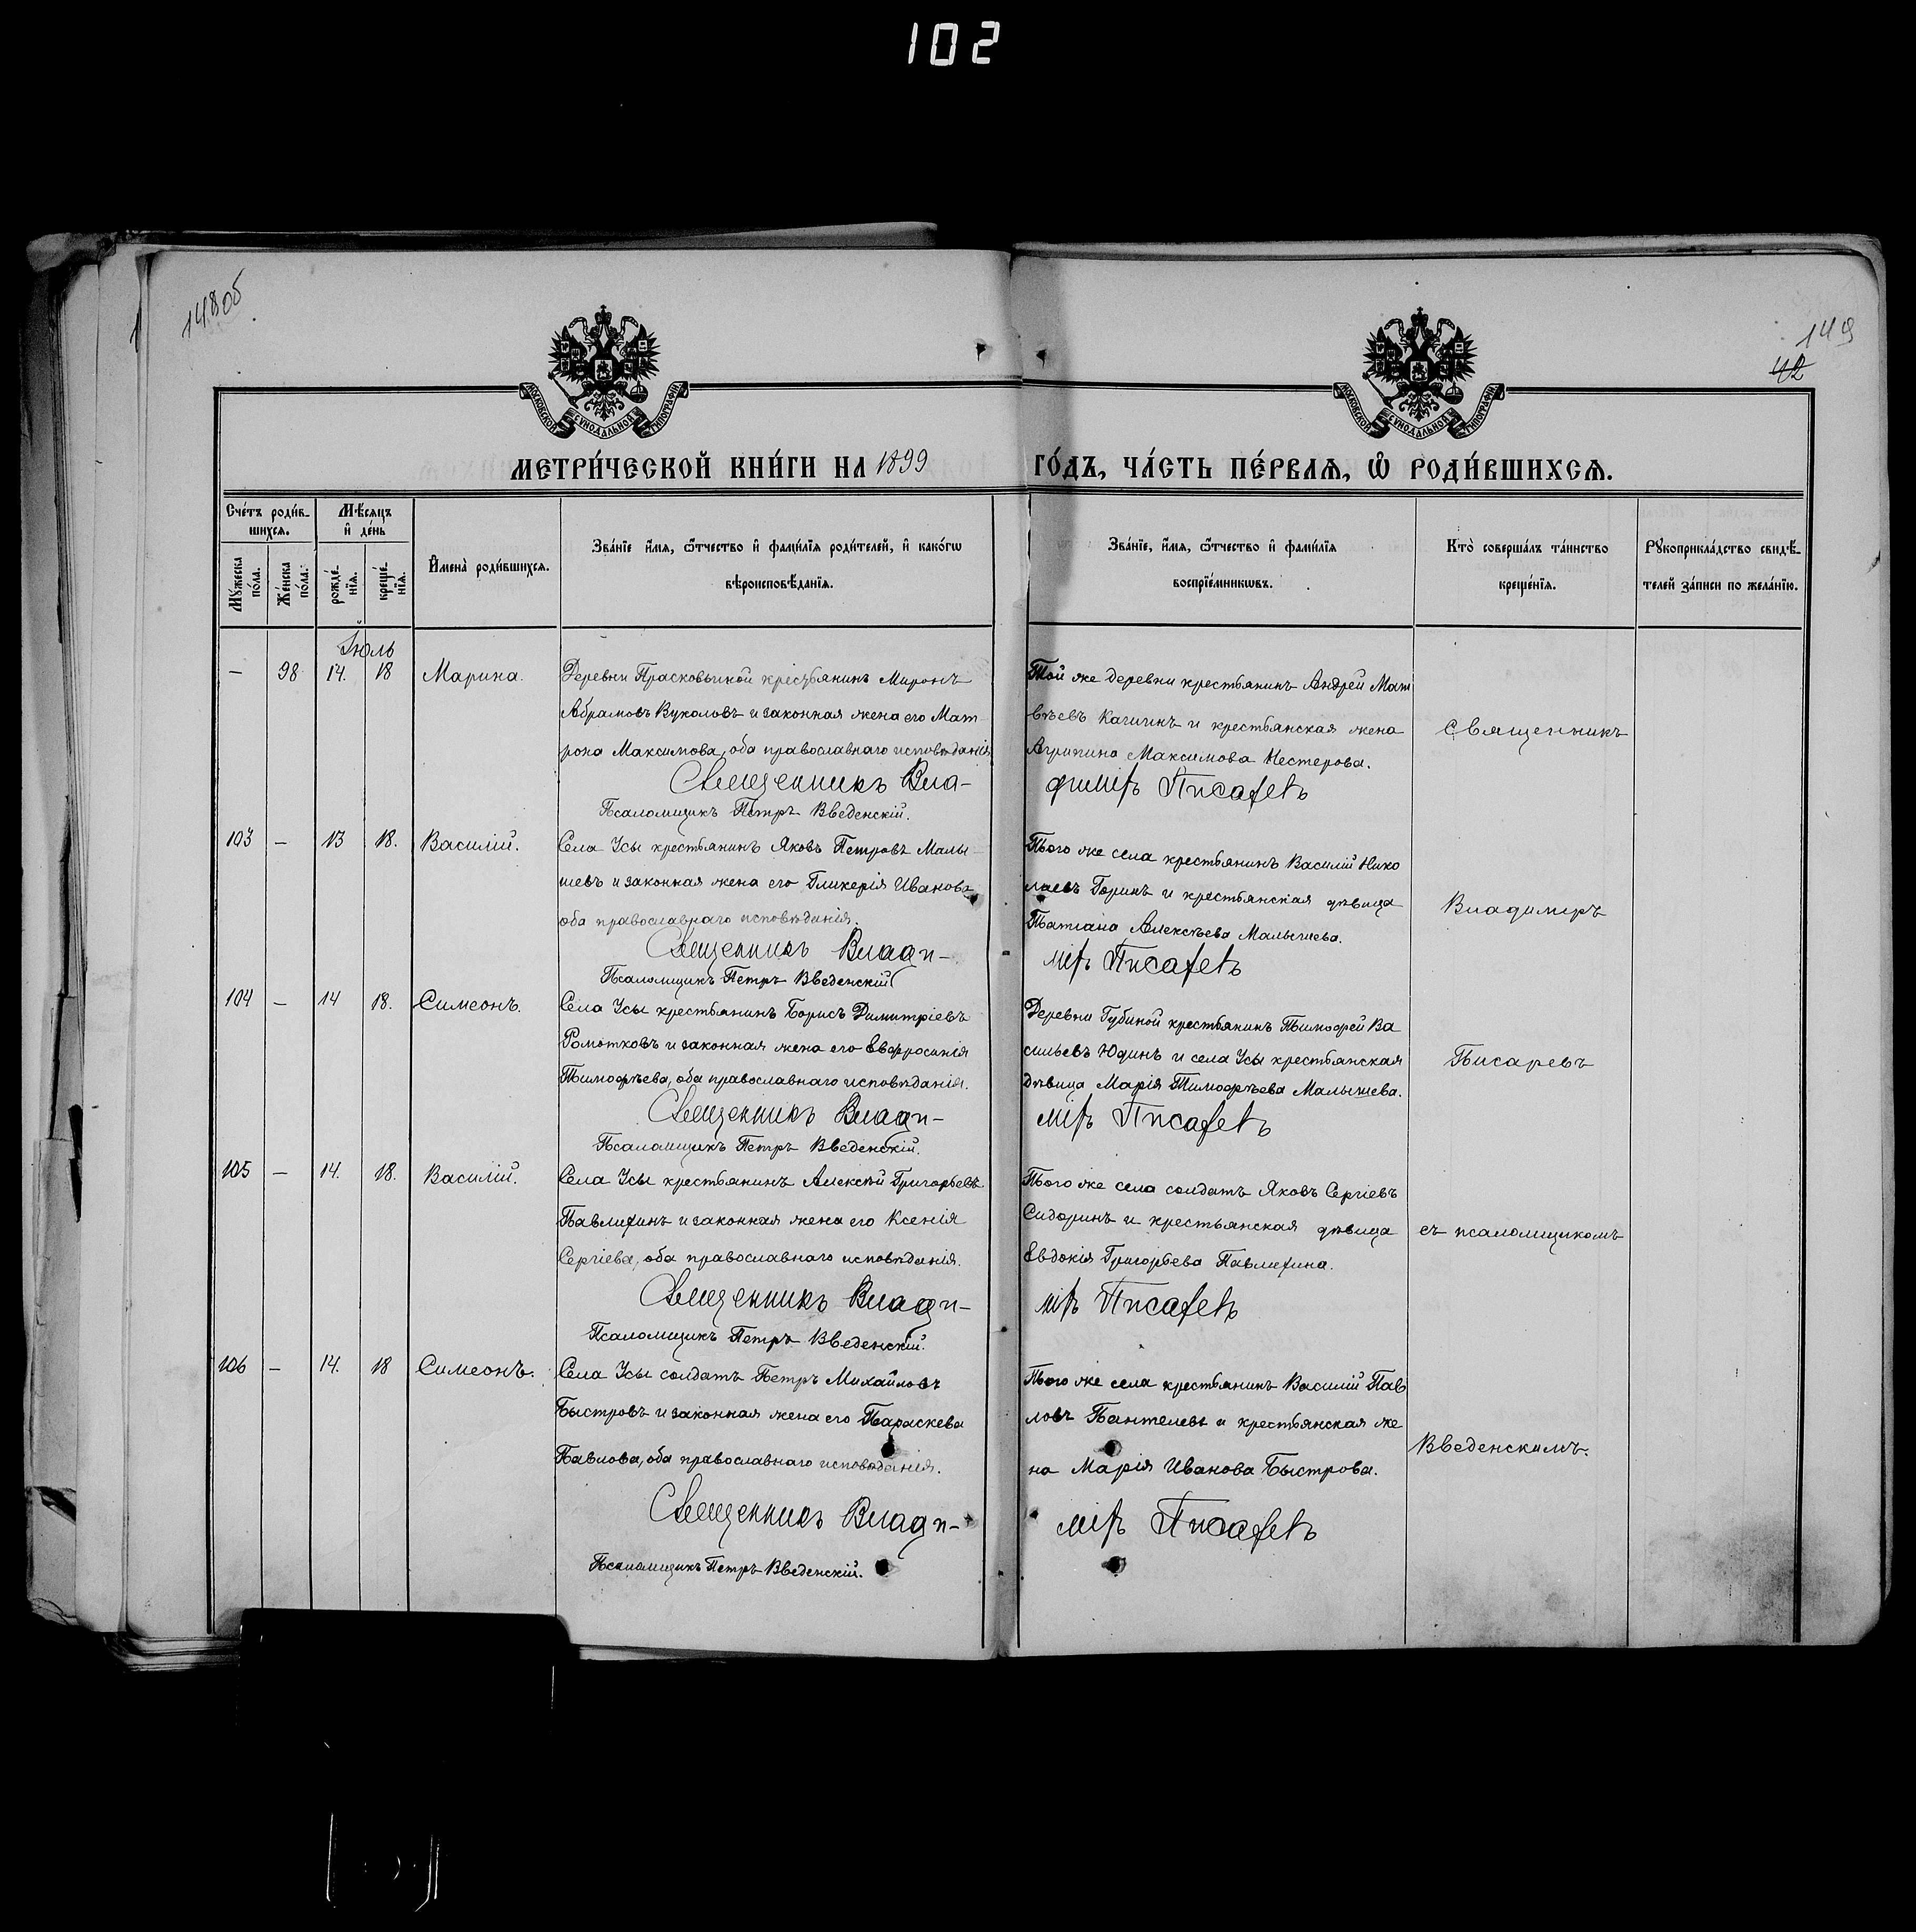 102
148об
149
42
МОСКОВСКОЙ СУНОДАЛЬНОЙ ТИПОГРАФІИ
МОСКОВСКОЙ СУНОДАЛЬНОЙ ТИПОГРАФІИ
МЕТРИ́ЧЕСКОЙ КНИ́ГИ НА 1899 ГО́ДЪ, ЧА́СТЬ ПЕ́РВАѦ, Ѡ҆ РОДИ́ВШИХСѦ.
Сче́тъ роди́в-
шихсѧ.
Мꙋ́жеска по́ла.
Же́нска по́ла.
Мѣ́сѧцъ
и҆ де́нь
рожде́-нїѧ.
креще́-нїѧ.
И҆мена̀ роди́вшихсѧ.
Зва́нїе и҆́мѧ, ѻ҆́тчество и҆ фами́лїѧ роди́телей, и҆ како́гѡ
вѣроисповѣ́данїѧ.
Зва́нїе, и҆́мѧ, ѻ҆́тчество и҆ фами́лїѧ
воспрїе́мникѡвъ.
Кто̀ соверша́лъ та́инство
креще́нїѧ.
Рꙋкоприкла́дство свидѣ́-
телей за́писи по жела́нїю.
Іюль
— 98 14. 18 Марина. Деревни Прасковьиной крестьянинъ Миронъ
Абрамовъ Вуколовъ и законная жена его Мат-
рона Максимова, оба православнаго исповѣданія
Священникъ Вла-
Псаломщикъ Петръ Введенскій.
Той же деревни крестьянинъ Андрей Мат
вѣевъ Качинъ и крестьянская жена
Агрипина Максимова Нестерова.
димiръ Писаревъ
Священникъ
103 — 13 18. Василій. Села Усы крестьянинъ Яковъ Петровъ Малы-
шевъ и законная жена его Гликерія Иванова
оба православнаго исповѣданія.
Священникъ Влади-
Псаломщикъ Петръ Введенскій
Того же села крестьянинъ Василій Нико
лаевъ Горинъ и крестьянская дѣвица
Татіана Алексѣева Малышева.
міръ Писаревъ
Владиміръ
104 — 14 18. Симеонъ. Села Усы крестьянинъ Борисъ Димитріевъ
Ромотковъ и законная жена его Евфросинія
Тимофѣева, оба православнаго исповѣданія.
Священникъ Влади-
Псаломщикъ Петръ Введенскій.
Деревни Губиной крестьянинъ Тимофей Ва
сильевъ Юдинъ и села Усы крестьянская
дѣвица Марія Тимофѣева Малышева.
міръ Писаревъ
Писаревъ
105 — 14. 18. Василій. Села Усы крестьянинъ Алексѣй Григорьевъ
Павлихинъ и законная жена его Ксенія
Сергіева, оба православнаго исповѣданія.
Священникъ Влади-
Псаломщикъ Петръ Введенскій.
Того же села солдатъ Яковъ Сергіевъ
Сидоринъ и крестьянская дѣвица
Евдокія Григорьева Павлихина.
міръ Писаревъ
съ псаломщикомъ
106 — 14. 18 Симеонъ. Села Усы солдатъ Петръ Михайловъ
Быстровъ и законная жена его Параскева
Павлова, оба православнаго исповѣданія.
Священникъ Влади-
Псаломщикъ Петръ Введенскій.
Того же села крестьянинъ Василій Пав
ловъ Пантелевъ и крестьянская же
на Марія Иванова Быстрова.
міръ Писаревъ
Введенскимъ.